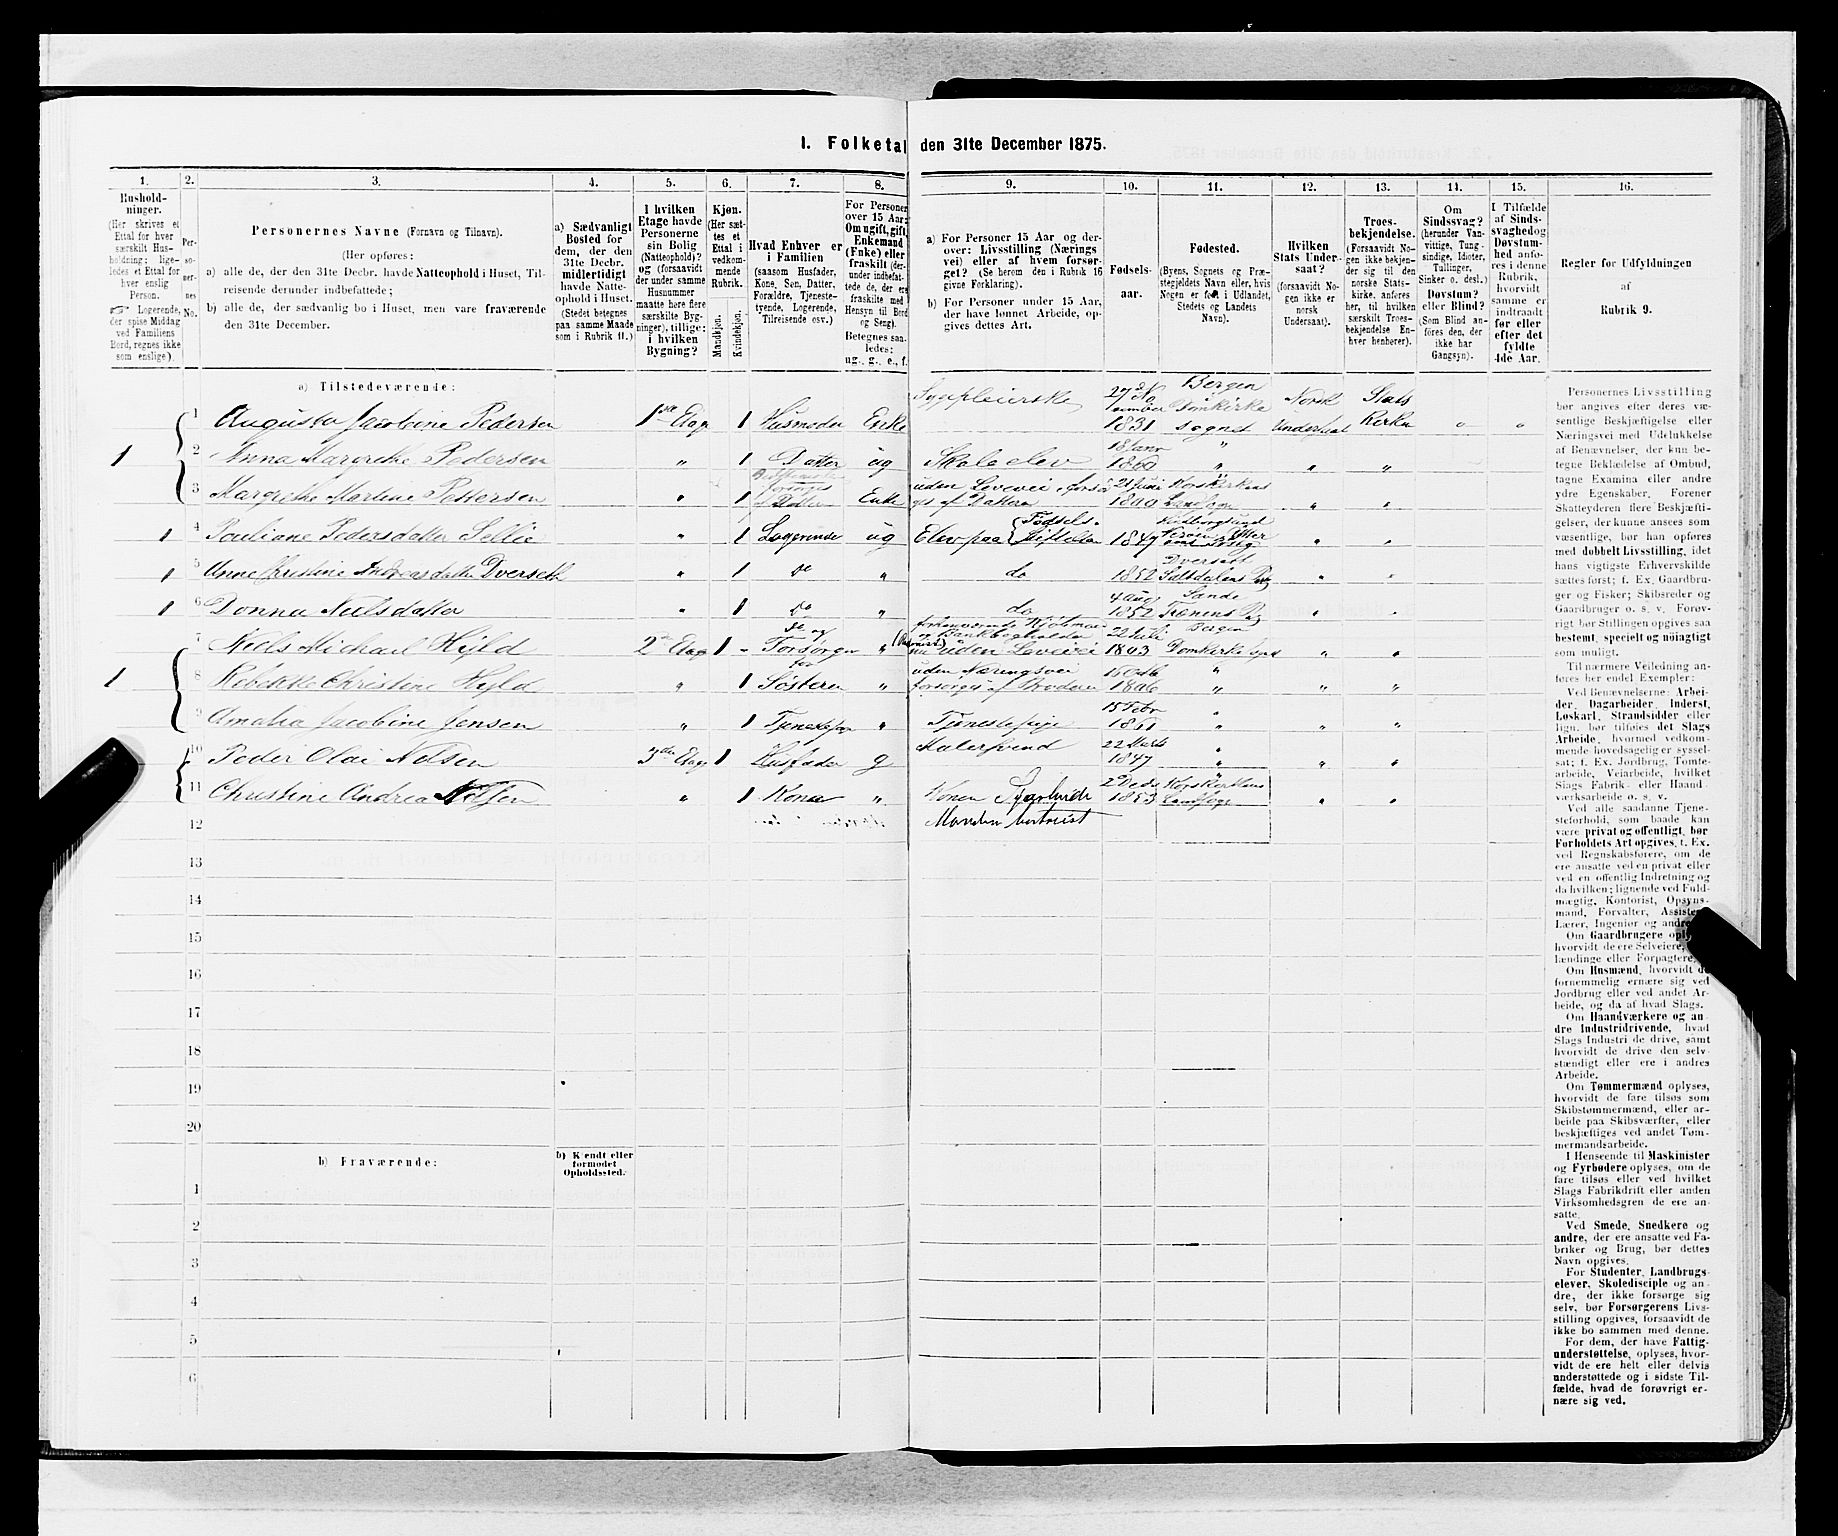 1. Folketal den 31te December 1875.
1.
Hushold-
ninger.
(Her skrives et
Ettal for hver
særskilt Hus-
holdning; lige-
ledes et Ettal for
hver enslig
Person.
Logerende,
der spise Middag
ved Familiens
Bord, regnes ikke
som enslige).
2.
Per-
so-
ner-
nes
No.
3.
Personernes Navne (Fornavn og Tilnavn).
(Her opføres:
a) alle de, der den 31te Decbr. havde Natteophold i Huset, Til-
reisende derunder indbefattede;
b) alle de, der sædvanlig bo i Huset, men vare fraværende
den 31te December.
4.
a) Sædvanligt
Bosted for
dem, der den
31te Decbr.
midlertidigt
havde Natte-
ophold i Huset.
(Stedet betegnes
paa samme Maade
som i Rubrik 11.)
5.
I hvilken
Etage havde
Personerne
sin Bolig
(Natteophold)?
og (forsaavidt
der under samme
Husnummer
maatte høre flere
særskilte Byg-
ninger), tillige:
i hvilken
Bygning?
6.
Kjøn.
(Her sæt-
tes et
Ettal i
vedkom-
mende
Rubrik.
Mandkjøn.
Kvindekjøn.
7.
Hvad Enhver er
i Familien
(saasom Husfader,
Kone, Søn, Datter,
Forældre, Tjeneste-
tyende, Logerende,
Tilreisende osv.)
8.
For Personer
over 15 Aar:
Om ugift, gift,
Enkemand
(Enke) eller
fraskilt (der-
under indbefat-
tede de, der ere
fraskilte med
Hensyn til Bord
og Seng).
Betegnes saa-
ledes:
ug., g., e., f.
9.
a) For Personer 15 Aar og der-
over: Livsstilling (Nærings
vei) eller af hvem forsør-
get? (Se herom den i Rubrik 16
givne Forklaring).
b) For Personer under 15 Aar,
der have lønnet Arbeide, op-
gives dettes Art.
10.
Fødsels-
aar.
11.
Fødested.
(Byens, Sognets og Præ-
stegjeldets Navn eller, hvis
Nogen er født i Udlandet,
Stedets og Landets
Navn).
12.
Hvilken
Stats Under-
saat?
(forsaavidt No-
gen ikke er
norsk
Undersaat).
13.
Troes-
bekjendelse.
(Forsaavidt No-
gen ikke bekjen-
der sig til den
norske Stats-
kirke, anføres
her, til hvilken
særskilt Troes-
bekjendelse En-
hver henhører).
14.
Om
Sindssvag?
(herunder Van-
vittige, Tung-
sindige, Idioter,
Tullinger,
Sinker o. desl.)
Døvstum?
eller Blind?
(Som Blind an-
føres den, der
ikke har
Gangsyn).
15.
I Tilfælde
af Sinds-
svaghed og
Døvstum-
hed anfø-
res i denne
Rubrik,
hvorvidt
samme er
indtraadt
før eller
efter det
fyldte
4de Aar.
16.
Regler for Udfyldningen
af
Rubrik 9.
a) Tilstedeværende:
1 Augusta Jacobine Pedersen 1ste Etage 1 Husmoder Enke Sygepleierske 27de November 1831 Bergen Domkirke sognet Norsk Undersaat Stats Kirken " "
1 2 Anna Margrethe Pedersen " 1 Datter ug Skoleelev 18 Janr 1860 " " "
3 Margrethe Martine Pettersen " 1 forsørges af Datteren Enke uden Levevei, forsørges af Datteren 21 Juni 1800 Korskirkens Landsogn " "
1 4 Pouliane Pedersdatter Sellie " 1 Logerende ug Elev paa Fødsels-Stiftelsen 1847 " "
1 5 Anne Christine Andreasdatter Dverseth " 1 do " do 1852 Dversæt " "
1 6 Donna Nielsdatter " 1 do " do 4 Aug 1852 Sande Trænens Pg " "
7 Niels Michael Hyld 2den Etage 1 - do og Forsørger " forhenværende Kjøbmand og Bankbogholder nu uden Levevei 22 Juli 1803 Bergen Domkirke sogn " "
1 8 Rebekke Christine Hyld " 1 for Søsteren " uden Næringsvei forsørges af Broderen 15 Octb 1806 " " "
9 Amalia Jacobine Jensen " 1 Tjenestepige " Tjenestepige 15 Febr 1861 " " "
10 Peder Olai Nilsen 3die Etage 1 Husfader g Malersvend 22 Marts 1847 " " "
11 Christine Andrea Nilsen " 1 Kone " Konen Manden 2 Decbr 1853 Korskirkens Landsogn " "
12
13
14
15
16
17
18
19
20
b) Fraværende:
b) Kjendt eller
formodet
Opholdssted.
1
2
3
4
5
6
Personernes Livsstilling
bør angives efter deres væ-
sentlige Beskjæftigelse eller
Næringsvei med Udelukkelse
af Benævnelser, der kun be-
tegne Beklædelse af Ombud,
tagne Examina eller andre
ydre Egenskaber. Forener
Skatteyderen flere Beskjæfti-
gelser, der kunne ansees som
væsentlige, bør han opføres
med dobbelt Livsstilling, idet
hans vigtigste Erhvervskilde
sættes først; f. Ex. Gaardbru-
ger og Fisker; Skibsreder og
Gaardbruger o. s. v. Forøv-
rigt bør Stillingen opgives saa
bestemt, specielt og nøiagtigt
som muligt.
Til nærmere Veiledning an-
føres her endel Exempler:
Ved Benævnelserne: Arbei-
der, Dagarbeider, Inderst,
Løskarl, Strandsidder eller
lign. bør tilføies det Slags
Arbeide, hvormed vedkom-
mende hovedsagelig er syssel-
sat; f. Ex. Jordbrug, Tomte-
arbeide, Veiarbeide, hvilket
Slags Fabrik- eller Haand-
værksarbeide o. s. v.
Ved alle saadanne Tjene-
steforhold, som baade kan
være privat og offentligt, bør
Forholdets Art opgives, f. Ex.
ved Regnskabsførere, om de
ere ansatte ved en privat eller
ved en offentlig Indretning og
da hvilken; lignende ved Fuld-
mægtig, Kontorist, Opsyns-
mand, Forvalter, Assistent,
Lærer, Ingeniør og andre.
Om Gaardbrugere oplyses,
hvorvidt de ere Selveiere,
lændinge eller Forpagtere.
Om Husmænd, hvorvidt de
fornemmelig ernære sig ved
Jordbrug eller ved andet Ar-
beide, og da af hvad Slags.
Om Haandværkere og an-
dre Industridrivende, hvad
Slags Industri de drive, samt
hvorvidt de drive den selv-
stændigt eller ere i andres
Arbeide.
Om Tømmermænd oplyses,
hvorvidt de fare tilsøs som
Skibstømmermænd, eller ar-
beide paa Skibsværfter, eller
beskjæftiges ved andet Tøm-
mermandsarbeide.
I Henseende til Maskinister
og Fyrbødere oplyses, om de
fare tilsøs eller ved hvilket
Slags Fabrikdrift eller anden
Virksomhedsgren de ere an-
satte.
Ved Smede, Snedkere og
andre, der ere ansatte ved Fa-
briker og Brug, bør dettes
Navn opgives.
For Studenter, Landbrugs-
elever, Skoledisciple og an-
dre, der ikke forsørge sig
selv, bør Forsørgerens Livs-
stilling opgives, forsaavidt de
ikke bo sammen med denne.
For dem, der have Fattig-
understøttelse, oplyses, hvor-
vidt de ere helt eller delvis
understøttede og i sidste Til-
fælde, hvad de forøvrigt er-
nære sig ved.